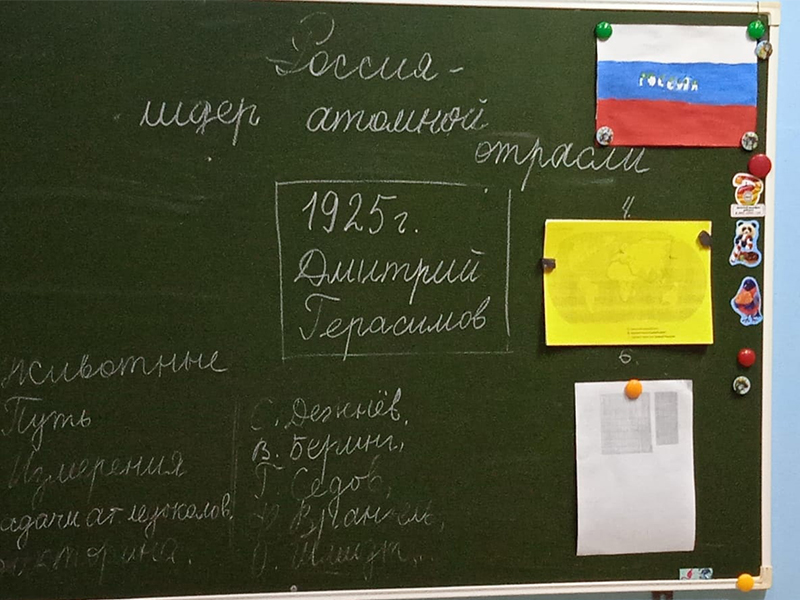 Россия -
лидер атомной
отрасли
РОССИЯ
4.
1925г.
Дмитрий
Герасимов
6.
Животные
Путь
Измерения
Задачи атледоколов.
Викторина.
С. Дежнёв,
В. Беринг,
Г. Седов,
Ф. Врангель,
О. Шмидт,..